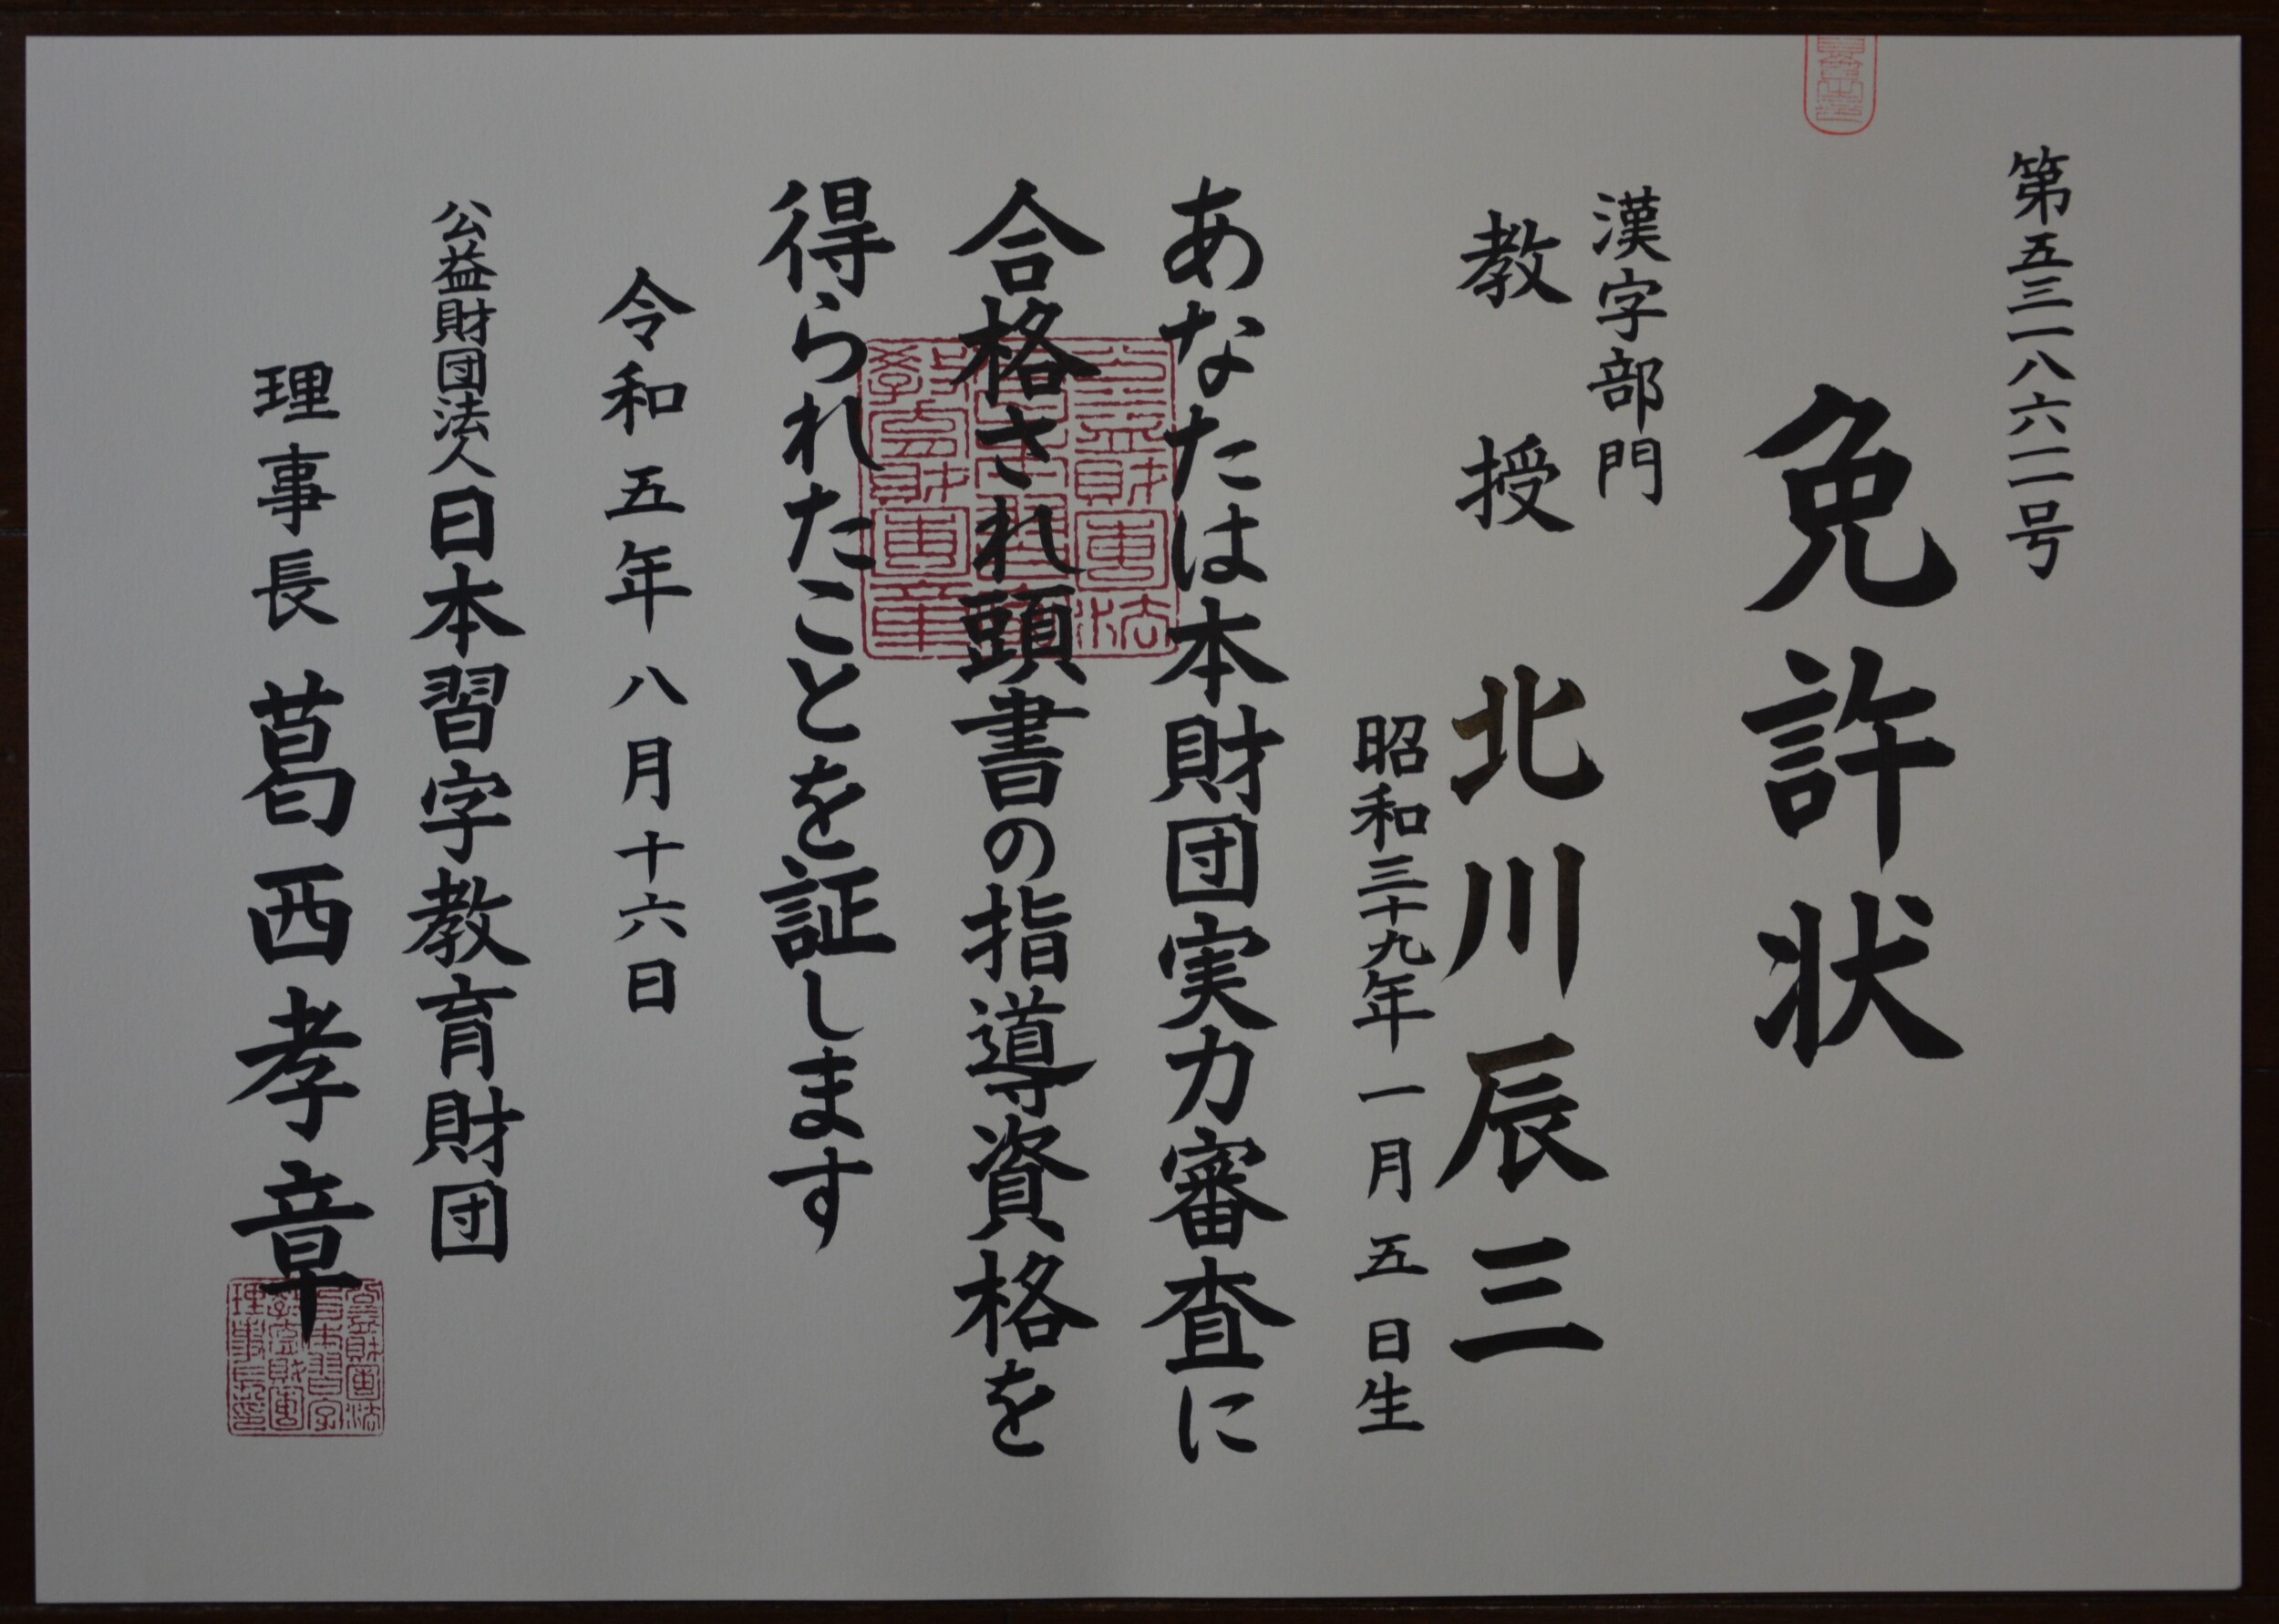 第五三一八六二号
免許状
漢字部門
教授 北川辰三
昭和三十九年一月五日生
あなたは本財団実力審査に
合格され頭書の指導資格を
得られたことを証します
令和五年八月十六日
公益財団法人日本習字教育財団
理事長 葛西孝章